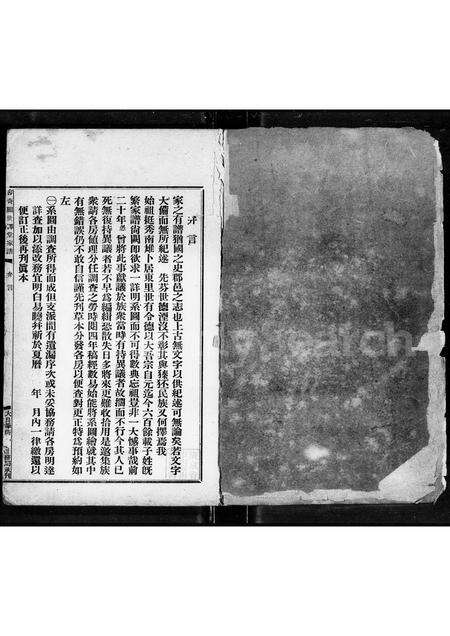 弁言
家之有譜猶國之史郡邑之志也上古無文字以供紀述可無論矣若文字
大備而無所紀述 先芬世德湮沒不彰其與獉狉民族又何擇焉我
始祖挺秀南雄卜居東里世有令德以大吾宗自元迄今六百餘載子姓旣
繁家譜尙闕即欲求一詳明系圖而不可得數典忘祖豈非一大憾事哉前
二十年 曾將此事獻議於族衆當時有持異議者故擱而不行今其人已
死無復持異議者若不早爲編緝恐散失日多將來更難收拾用是邀集族
衆請各房値理分任調查之勞時閱四年稿經數易始能將系圖繪就其中
有無錯誤仍不敢自信謹先刋草本分發各房以便查對更正特爲預約如
左
㊀系圖由調查所得而成但支派間有遺漏序次或未妥協務請各房明達
詳查加以添改務宜明白易曉并祈於夏曆 年 月內一律繳還以
便訂正後再刋眞本
弁言